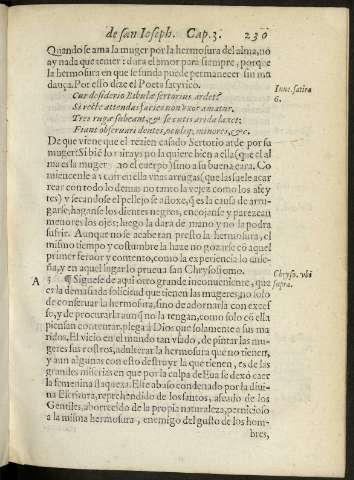 de san Ioseph. Cap. 3. 230
Quando se ama la muger por la hermosura del alma, no
ay nada que temer: dura el amor para siempre, porque
la hermosura en que se funda puede permanecer sin mu
dança. Por esso dize el Poeta satyrico.
Iuue. satira
6.
Cur desiderio Bibulæ sertorius ardet?
Si recte attendas facies non vxor amatur.
Tres rugæ subeant, & se cutis arida laxet:
Fiant obscuri dentes, oculiq; minores, &c.
De que viene que el rezien casado Sertorio arde por su
muger: Si biẽ lo mirays no la quiere bien a ella (que el al
ma es la muger no el cuerpo) sino a su buena cara. Co
miencenle a venir en ella vnas arrugas (que las suele acar
rear con todo lo demas no tanto la vejez como los afey
tes) y secandose el pellejo se afloxe, q̃ es la causa de arru-
garse, haganse los dientes negros, encojanse y parezcan
menores los ojos; luego la dara de mano y no la podra
sufrir. Aunque no se acabetan presto la hermosura, el
mismo tiempo y costumbre la haze no gozarse cõ aquel
primer feruor y contento, como la experiencia lo ense-
ña, y en aquel lugar lo prueua san Chrysostomo.
Chryso. vbi
supra.
A 5 ¶ Siguese de aqui otro grande inconueniente, que
es la demasiada solicitud que tienen las mugeres, no solo
de conseruar la hermosura, sino de adornarla con exces
so, y de procurarla aunq̃ no la tengan, como solo cõ ella
piensan contentar, plega à Dios que solamente a sus ma
ridos. El vicio en el mundo tan vsado, de pintar las mu-
geres sus rostros, adulterar la hermosura que no tienen,
y aun algunas con esto destruyr la que tienen, es de las
grandes miserias en que por la culpa de Eua se dexò caer
la femenina flaqueza. Este abuso condenado por la diui-
na Escritura, reprehendido de los santos, afeado de los
Gentiles, aborrecido de la propia naturaleza, pernicioso
a la misma hermosura, enemigo del gusto de los hom-
bres,